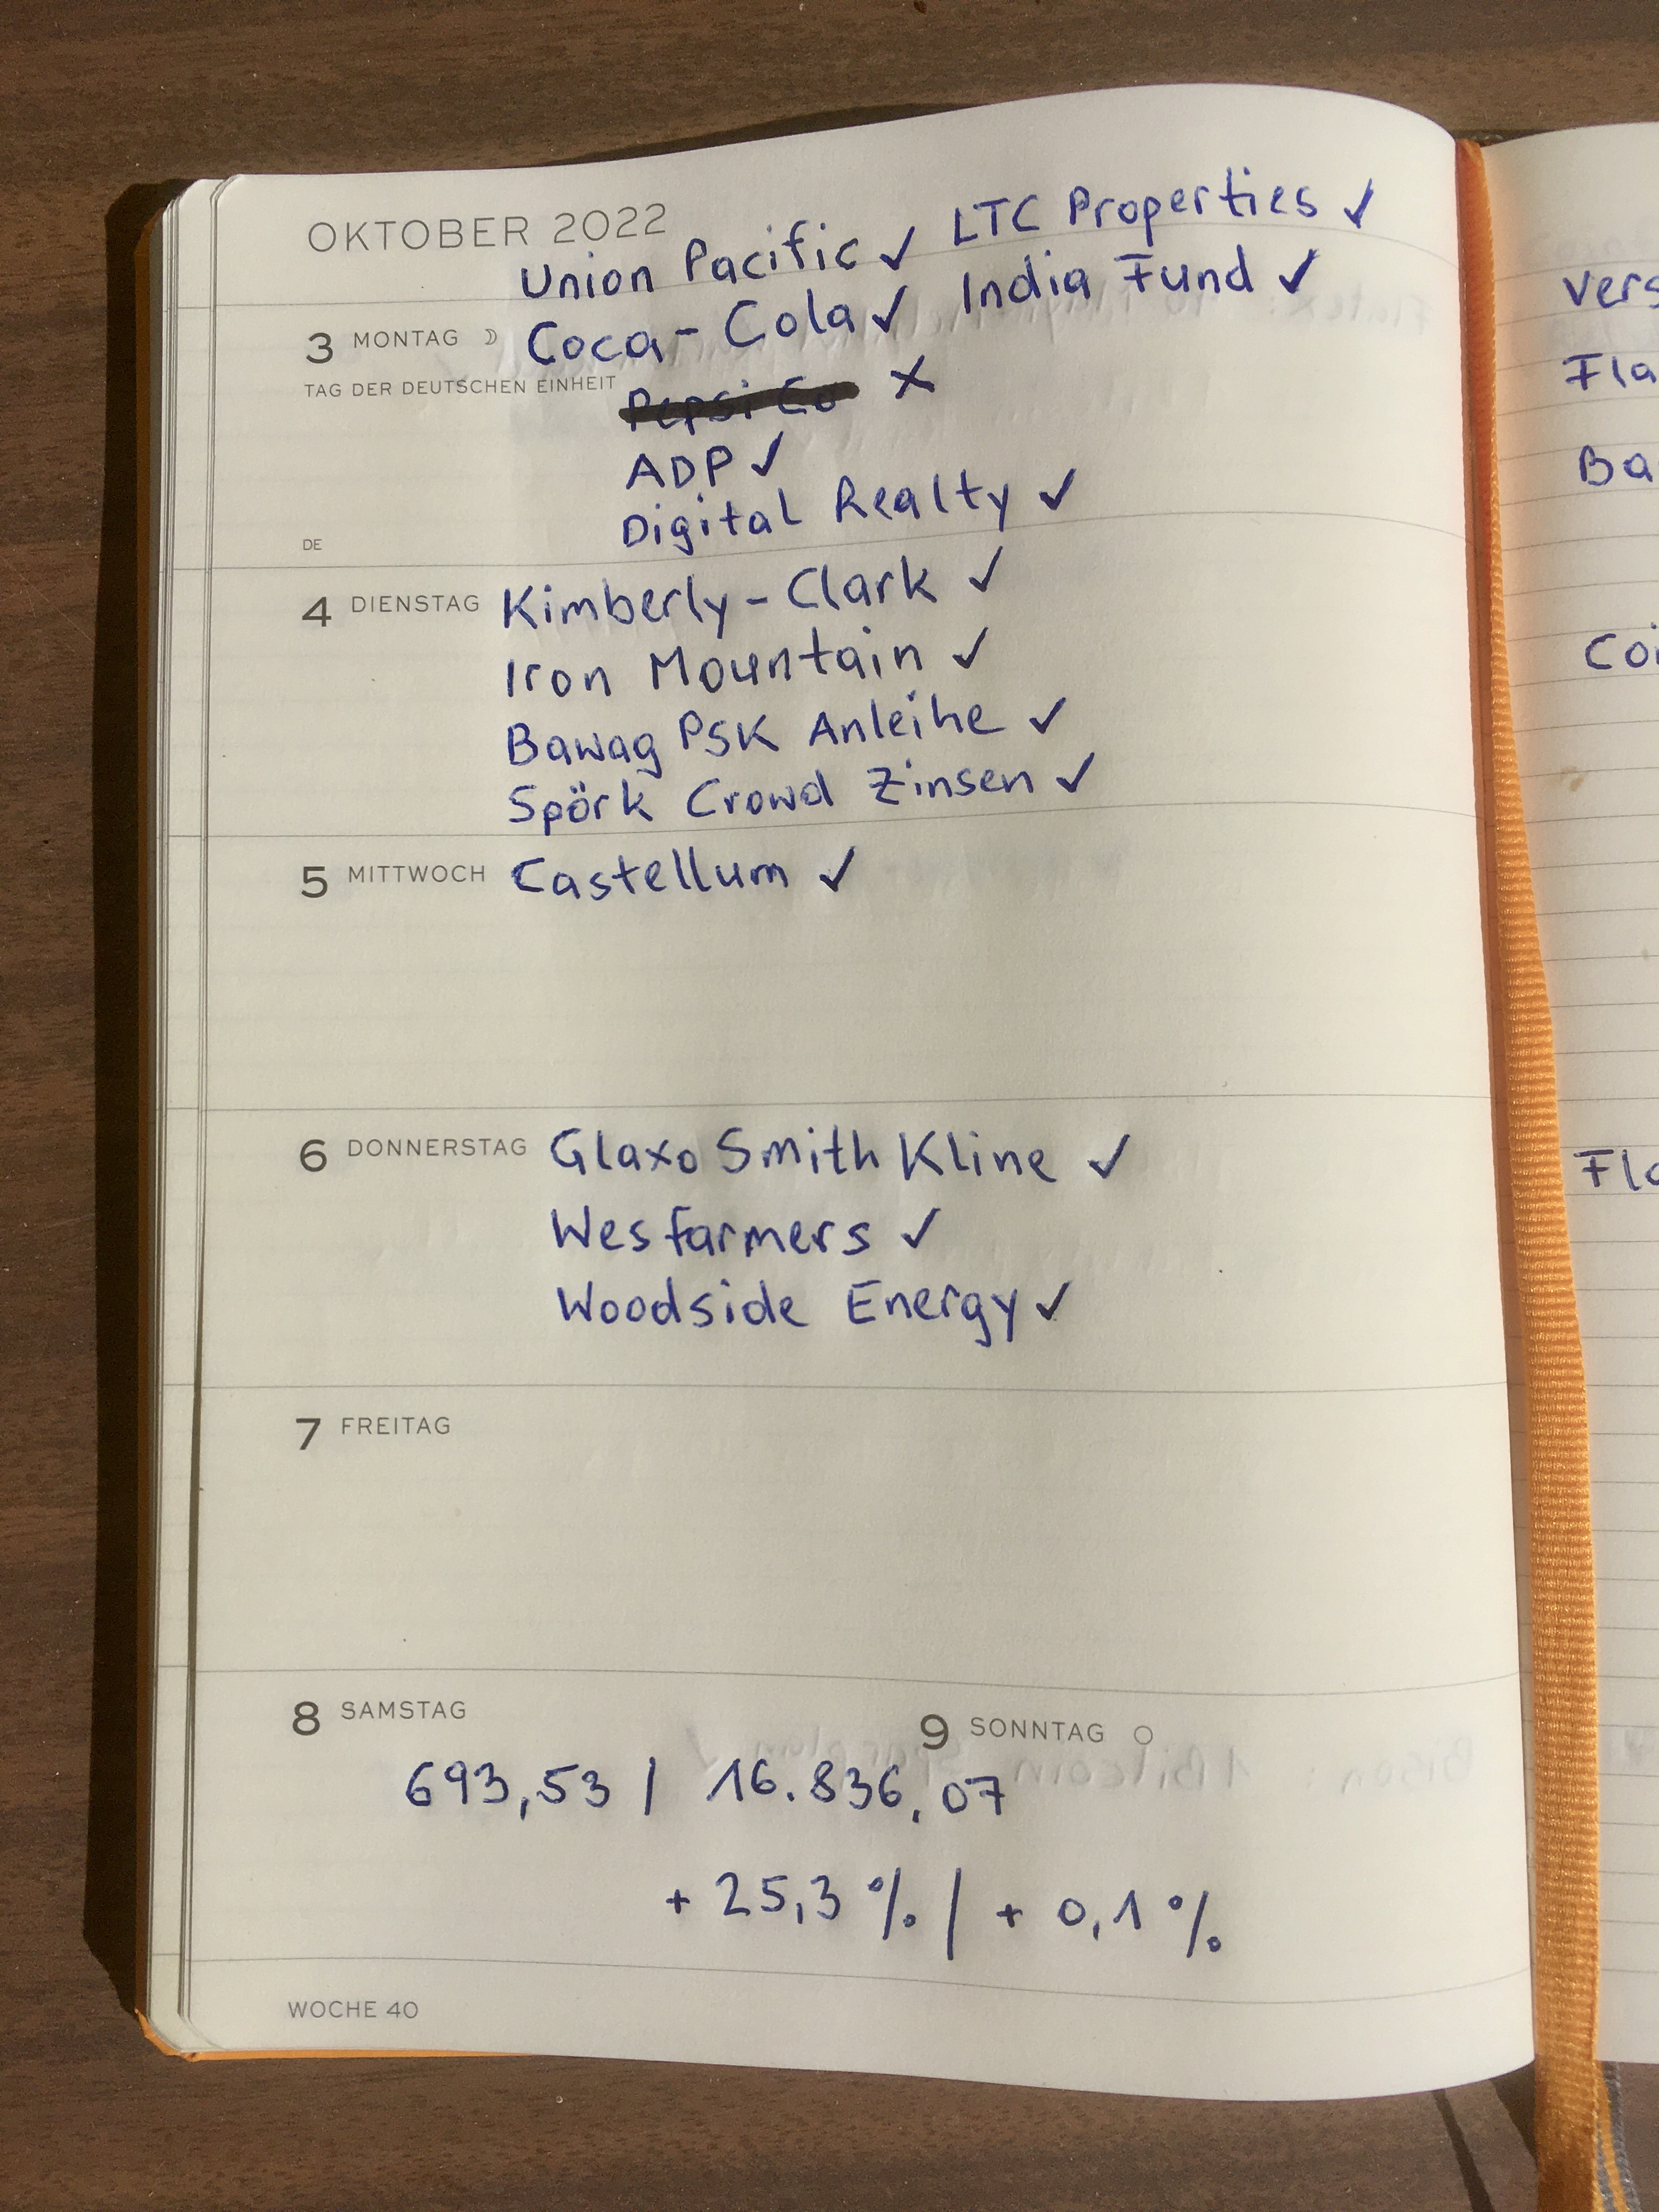 OKTOBER 2022
Union Pacific ✓ LTC Properties ✓
3 MONTAG Coca-Cola ✓ India Fund ✓
TAG DER DEUTSCHEN EINHEIT
Pepsi Co X
ADP ✓
Digital Realty ✓
DE
4 DIENSTAG Kimberly-Clark ✓
Iron Mountain ✓
Bawag PSK Anleihe ✓
Spörk Crowd Zinsen ✓
5 MITTWOCH Castellum ✓
6 DONNERSTAG Glaxo Smith Kline ✓
Wesfarmers ✓
Woodside Energy ✓
7 FREITAG
8 SAMSTAG
9 SONNTAG
693,53 / 16.836,07
+ 25,3 % / + 0,1 %
WOCHE 40
vers
Fla
Ba
Coi